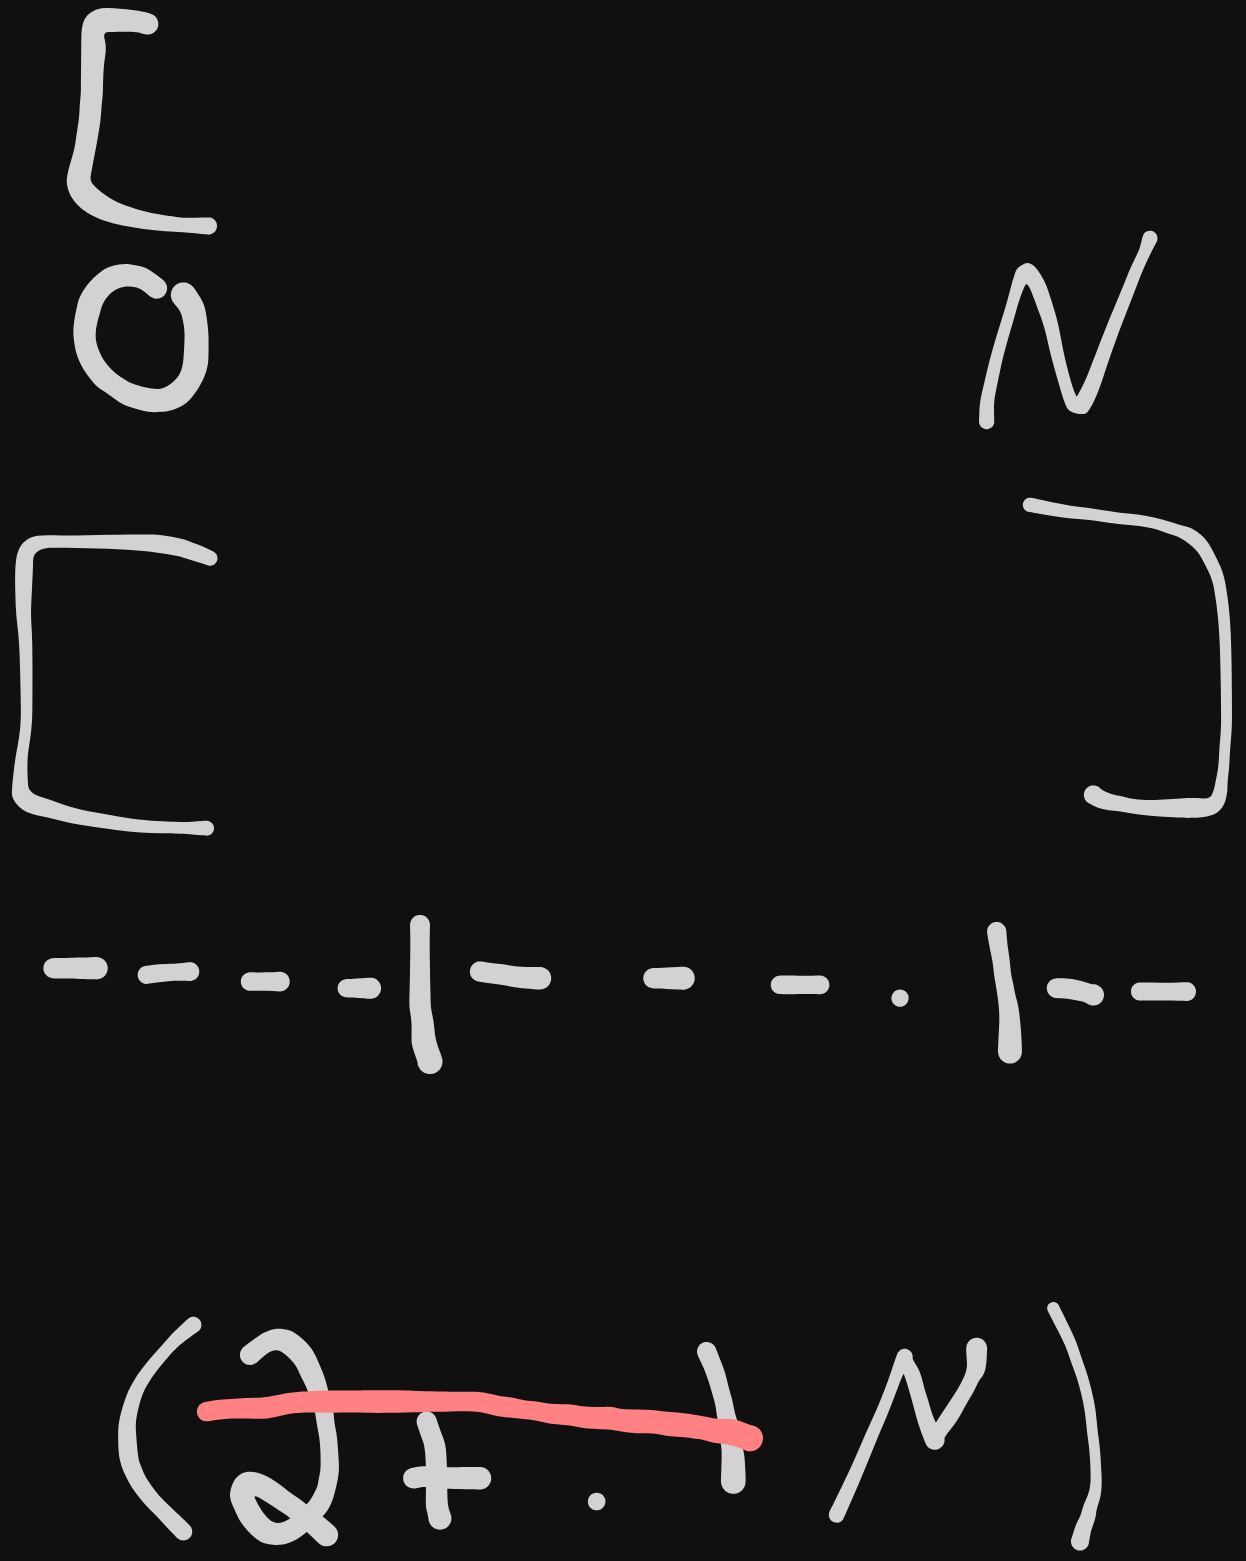 [
O N
[ ]
- - - - | - - - . | - -
(2 + . 1 N)